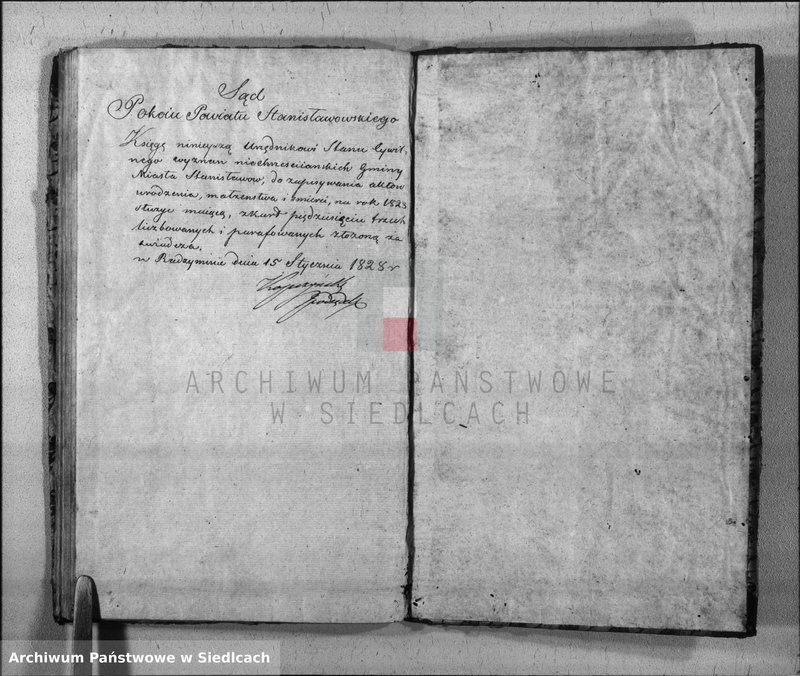 Sąd
Pokoiu Powiatu Stanisławowskiego
Księgę ninieyszą Urzędnikowi Stanu Cywil,
nego wyznań niechrześciańskich Gminy
Miasta Stanisławow, do zapisywania aktow
urodzenia, małżenstwa i śmierci, na rok 1828
służyc maiącą, z kart piędziesięciu trzech
liczbowanych i parafowanych złożoną za
świadcza,
w Radzyminie dnia 15 Stycznia 1828 r
Podsędek
ARCHIWUM PAŃSTWOWE
W SIEDLCACH
Archiwum Państwowe w Siedlcach